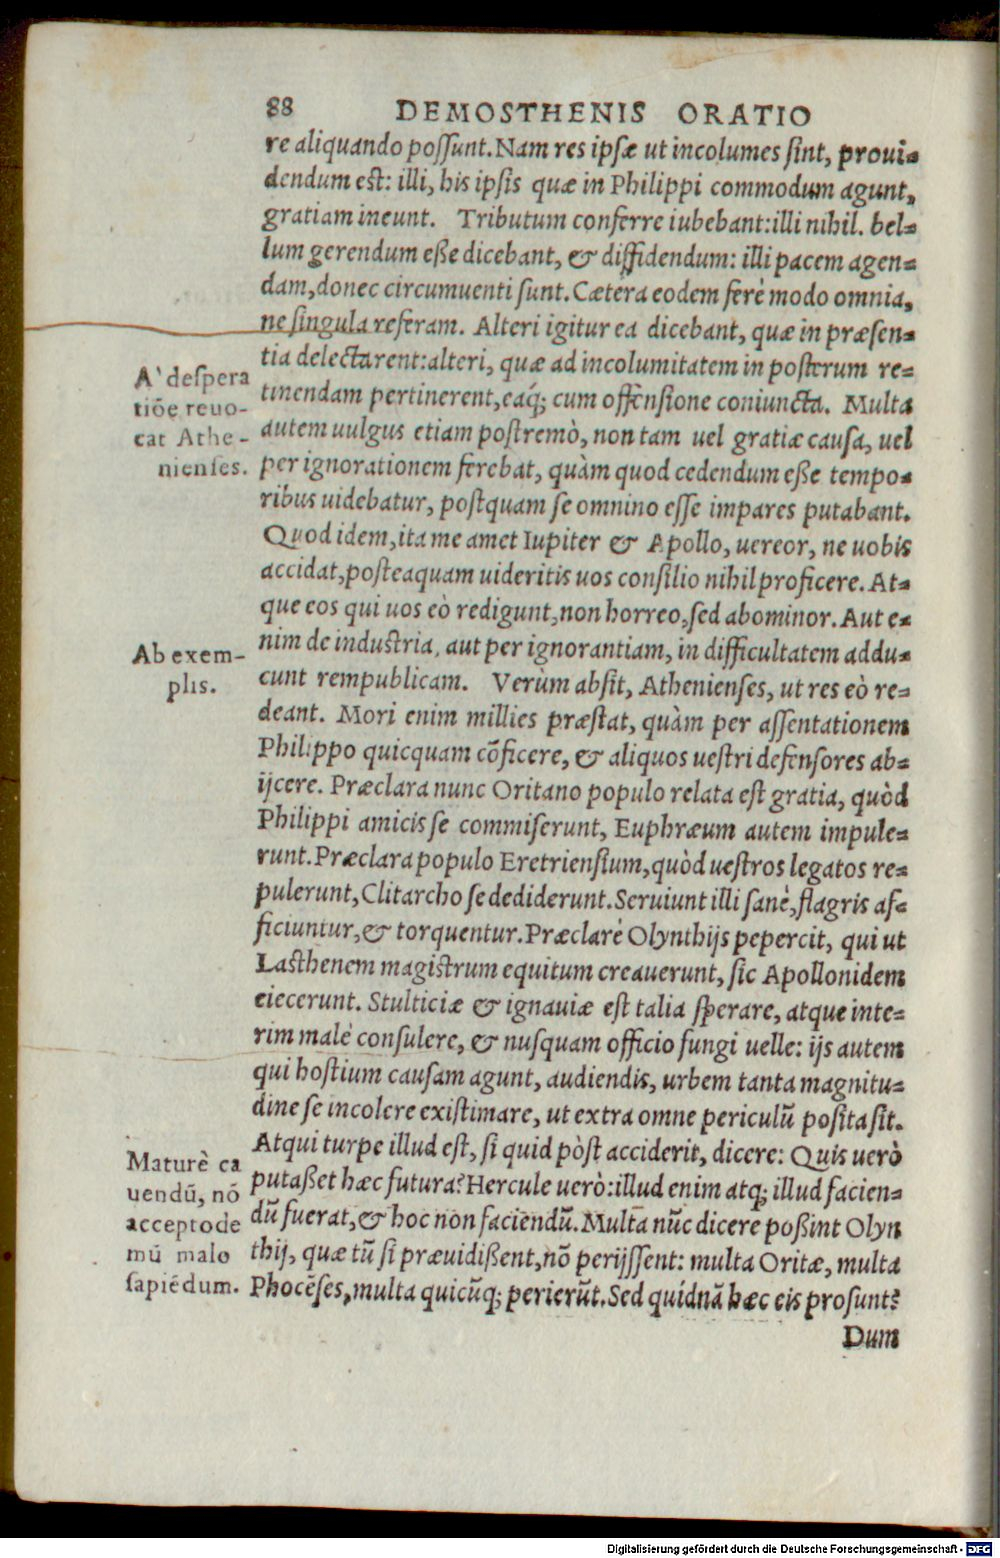 88 DEMOSTHENIS ORATIO
re aliquando possunt. Nam res ipsæ ut incolumes sint, proui-
dendum est: illi, his ipsis quæ in Philippi commodum agunt,
gratiam ineunt. Tributum conferre iubebant: illi nihil. bel-
lum gerendum eße dicebant, & diffidendum: illi pacem agen-
dam, donec circumuenti sunt. Cætera eodem ferè modo omnia,
ne singula referam. Alteri igitur ea dicebant, quæ in præsen-
tia delectarent: alteri, quæ ad incolumitatem in posterum re-
tinendam pertinerent, eaq́; cum offensione coniuncta. Multa
autem uulgus etiam postremò, non tam uel gratiæ causa, uel
per ignorationem ferebat, quàm quod cedendum eße tempo-
ribus uidebatur, postquam se omnino esse impares putabant.
Quod idem, ita me amet Iupiter & Apollo, uereor, ne uobis
accidat, posteaquam uideritis uos consilio nihil proficere. At-
que eos qui uos eò redigunt, non horreo, sed abominor. Aut e-
nim de industria, aut per ignorantiam, in difficultatem addu-
cunt rempublicam. Verùm absit, Athenienses, ut res eò re-
deant. Mori enim millies præstat, quàm per assentationem
Philippo quicquam cōficere, & aliquos uestri defensores ab-
ijcere. Præclara nunc Oritano populo relata est gratia, quòd
Philippi amicis se commiserunt, Euphræum autem impule-
runt. Præclara populo Eretriensium, quòd uestros legatos re-
pulerunt, Clitarcho se dediderunt. Seruiunt illi sanè, flagris af-
ficiuntur, & torquentur. Præclarè Olynthijs pepercit, qui ut
Lasthenem magistrum equitum creauerunt, sic Apollonidem
eiecerunt. Stulticiæ & ignauiæ est talia sperare, atque inte-
rim malè consulere, & nusquam officio fungi uelle: ijs autem
qui hostium causam agunt, audiendis, urbem tanta magnitu-
dine se incolere existimare, ut extra omne periculū posita sit.
Atqui turpe illud est, si quid pòst acciderit, dicere: Quis uerò
putaßet hæc futura? Hercule uerò: illud enim atq; illud facien-
dū fuerat, & hoc non faciendū. Multa nūc dicere poßint Olyn
thij, quæ tū si præuidißent, nō perijssent: multa Oritæ, multa
Phocēses, multa quicūq; perierūt. Sed quidnā hæc eis prosunt?
Dum
A` despera
tiōe reuo-
cat Athe-
nienses.
Ab exem-
plis.
Maturè ca
uendū, nō
accepto de
mū malo
sapiēdum.
Digitalisierung gefördert durch die Deutsche Forschungsgemeinschaft - DFG